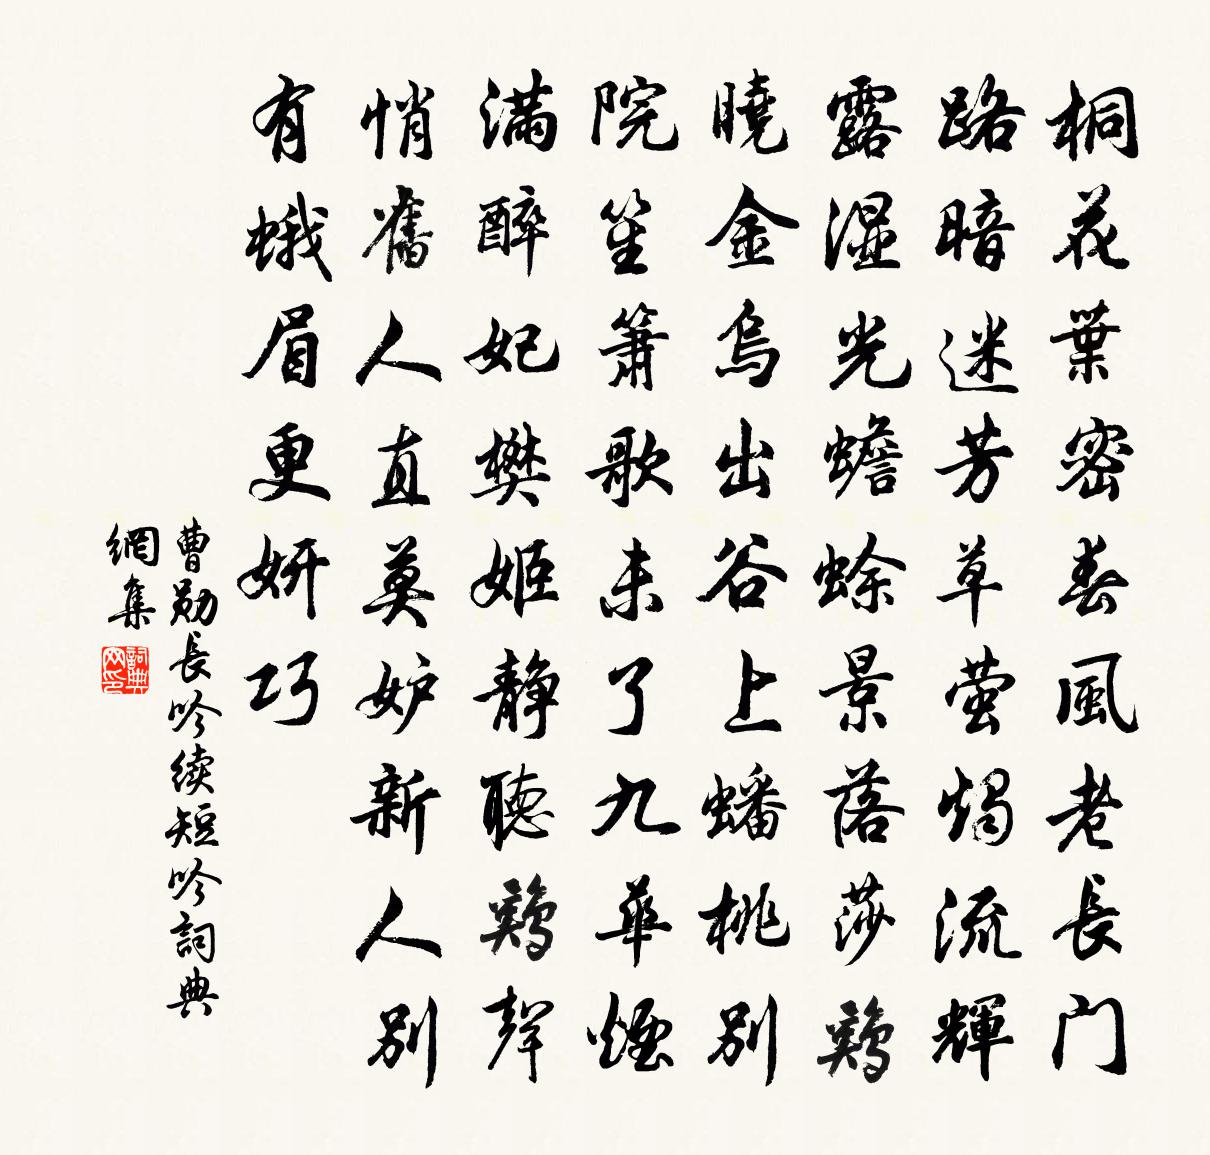 桐花葉密春風老長門
路暗迷芳草萤燭流輝
露湿光蟾蜍景落莎鷄
曉金烏出谷上蟠桃別
院笙簫歌未了九華煙
满醉妃樊姬静聽鷄聲
悄舊人直莫妒新人別
有蛾眉更妍巧
曹勛長吟续短吟詞典
網集
詞典
网